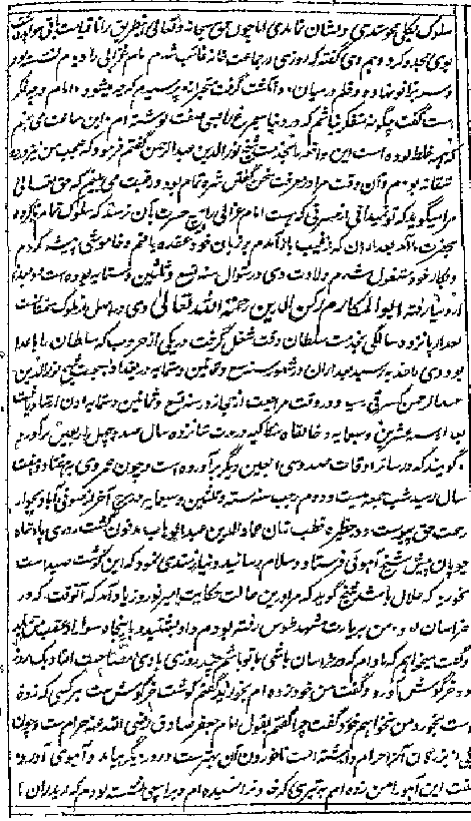 سلوک نیکی بودی و نشان نماندی اما چون حق سبحانه و تعالی از طریق
بوی وی گفته که روزی در جماعت خانه غائب شدم امام غزالی را دیدم نشسته بود
و سر بزانو نهاده و قلم در میان دو انگشت گرفته متحیرانه پرسیدم که چه میشود امام و چه فکر
است گفت چگونه متفکر نباشم که در دنیا سیمرغ را بسی صفت نوشته ام این ساعت می بینم
که همه غلط بوده است این واقعه را بخدمت شیخ نورالدین عبدالرحمن گفتم فرمود که عجب من نیز در
بودم و آن وقت مرا در معرفت سخن گفتن شره تمام بود و در غیبت می بینم که حق تعالی
مرا میگوید که تو نمیدانی از معرفتی که هست امام غزالی را بر چه حسرت بآن نرسد که سلوک تمام ناکرده
بحضرت ما آمد بعد از آن که از غیبت باز آمدم بر زبان خود عقده یافتم و خاموشی پیشه کردم
و بکار خود مشغول شدم ولادت وی در شوال سنه تسع و ثلثین و ستمایه بوده است
از دنیا رفته ابوالمکارم رکن الدین رحمة الله تعالی وی در اصل از ملوک سمنان است
بعد از پانزده سالگی بخدمت سلطان وقت شغل گرفت در یکی از حروب که سلطان را با اعدا
بود وی را جذبه رسید بعد از آن در شهور سنه سبع و ثمانین و ستمایه در بغداد بصحبت شیخ نورالدین
عبدالرحمن کسرقی رسید و در وقت مراجعت از حجاز در سنه تسع و ثمانین و ستمایه اذن ارشاد یافت
بعد از سنه عشرین و سبعمایه در خانقاه سکاکیه در مدت شانزده سال صد و چهل اربعین برآورد
و گویند که در سائر اوقات صد و سی اربعین دیگر برآورده است و چون عمر وی به هفتاد و هفت
سال رسید شب جمعه بیست و دوم رجب سنه ست و ثلثین و سبعمایه در برج احرار صوفی آباد بجوار
رحمت حق پیوست و در حظیره قطب زمان عمادالدین عبدالوهاب مدفون گشت روزی پادشاه
چوپان پیش شیخ آهوئی فرستاد و سلام رسانید و نیازمندی نمود که این گوشت صید است
بخورید که حلال باشد شیخ گوید که مرا درین حالت حکایت امیر نوروز یاد آمد که آنوقت که در
خراسان بود و من بزیارت مشهد طوس رفته بودم
گفت میخواهم که مادام که در خراسان باشی با تو باشم چند روزی با وی مصاحبت افتاد یک روز
دو خرگوش آورد و گفت من خود زده ام بخورید گفتم گوشت خرگوش است هر کسی که زده
است بخورد من نخواهم خورد گفت چرا گفتم بقول امام جعفر صادق رضی الله عنه حرام است و چون
یکی از بزرگان آنرا حرام دانسته است ناخوردن آن بهتر است روز دیگر بیامد و آهوئی آورد و
گفت این آهو را من زده ام به تیری که خود تراشیده ام و بر اسپی نشسته بودم که